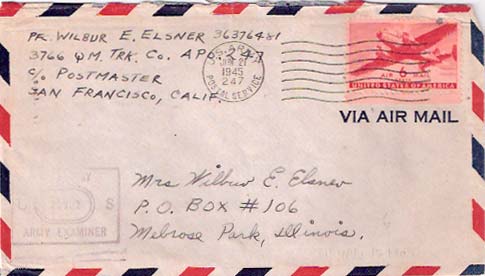 Pfc. WILBUR E. ELSNER 36376481
3766 Q.M. TRK. Co. APO 247
c/o POSTMASTER
SAN FRANCISCO, CALIF.
U.S. ARMY
JUN 21
1945
247
POSTAL SERVICE
6
AIR MAIL
UNITED STATES OF AMERICA
VIA AIR MAIL
Mrs Wilbur E. Elsner
P.O. BOX #106
Melrose Park, Illinois.
U S
ARMY EXAMINER